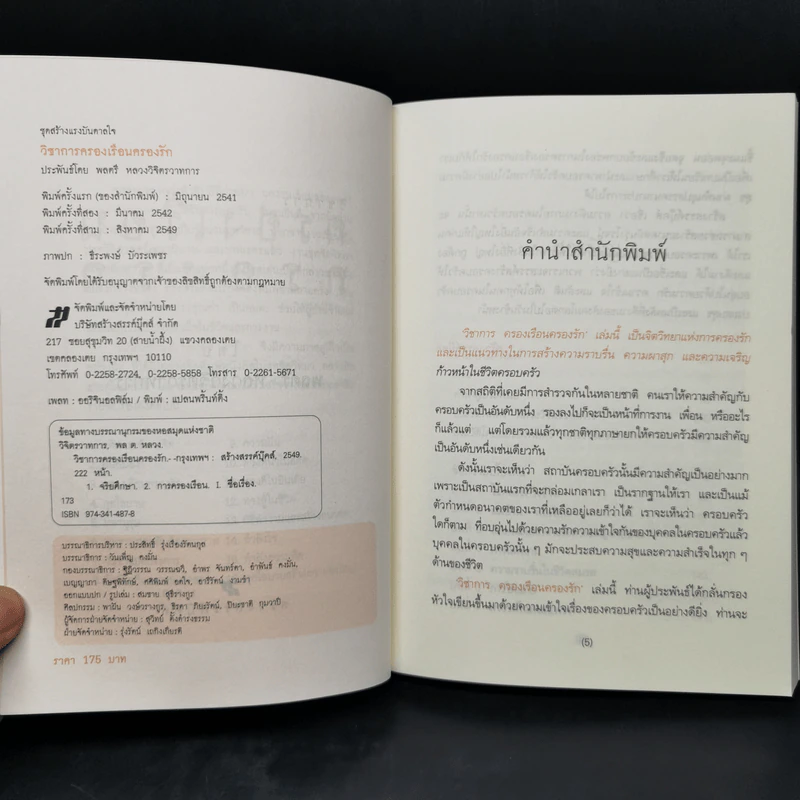 ชุดสร้างแรงบันดาลใจ
วิชาการครองเรือนครองรัก
ประพันธ์โดย พลตรี หลวงวิจิตรวาทการ
พิมพ์ครั้งแรก (ของสำนักพิมพ์) : มิถุนายน 2541
พิมพ์ครั้งที่สอง : มีนาคม 2542
พิมพ์ครั้งที่สาม : สิงหาคม 2549
ภาพปก : ธีระพงษ์ บัวระเพชร
จัดพิมพ์โดยได้รับอนุญาตจากเจ้าของลิขสิทธิ์ถูกต้องตามกฎหมาย
จัดพิมพ์และจัดจำหน่ายโดย
บริษัทสร้างสรรค์บุ๊คส์ จำกัด
217 ซอยสุขุมวิท 20 (สายน้ำผึ้ง) แขวงคลองเตย
เขตคลองเตย กรุงเทพฯ 10110
โทรศัพท์ 0-2258-2724, 0-2258-5858 โทรสาร 0-2261-5671
เพลท : ออริจินอลฟิล์ม / พิมพ์ : แปลนพริ้นท์ติ้ง
ข้อมูลทางบรรณานุกรมของหอสมุดแห่งชาติ
วิจิตรวาทการ, พล ต. หลวง.
วิชาการครองเรือนครองรัก.--กรุงเทพฯ : สร้างสรรค์บุ๊คส์, 2549.
222 หน้า.
1. จริยศึกษา. 2. การครองเรือน. I. ชื่อเรื่อง.
173
ISBN 974-341-487-8
บรรณาธิการบริหาร : ประสิทธิ์ รุ่งเรืองรัตนกุล
บรรณาธิการ : วันเพ็ญ คงมั่น
กองบรรณาธิการ : ฐิฏิวรรณ วรรณฉวี, อำพร จันทร์ดา, อำพันธ์ คงมั่น,
เบญญาภา ดิษฐพิทักษ์, ศศิพิมพ์ อดใจ, อารีรัตน์ งามขำ
ออกแบบปก / รูปเล่ม : สมชาย สุธีรางกูร
ศิลปกรรม : พายัน วงษ์วรางกูร, ธิรดา ภิยะรัตน์, ปิยะชาติ กุมวาปี
ผู้จัดการฝ่ายจัดจำหน่าย : สุวิทย์ ตั้งดำรงธรรม
ฝ่ายจัดจำหน่าย : รุ่งรัตน์ เถกิงเกียรติ
ราคา 175 บาท
คำนำสำนักพิมพ์
'วิชาการ ครองเรือนครองรัก' เล่มนี้ เป็นจิตวิทยาแห่งการครองรัก
และเป็นแนวทางในการสร้างความราบรื่น ความผาสุก และความเจริญ
ก้าวหน้าในชีวิตครอบครัว
จากสถิติที่เคยมีการสำรวจกันในหลายชาติ คนเราให้ความสำคัญกับ
ครอบครัวเป็นอันดับหนึ่ง รองลงไปก็จะเป็นหน้าที่การงาน เพื่อน หรืออะไร
ก็แล้วแต่ แต่โดยรวมแล้วทุกชาติทุกภาษายกให้ครอบครัวมีความสำคัญ
เป็นอันดับหนึ่งเช่นเดียวกัน
ดังนั้นเราจะเห็นว่า สถาบันครอบครัวนั้นมีความสำคัญเป็นอย่างมาก
เพราะเป็นสถาบันแรกที่จะกล่อมเกลาเรา เป็นรากฐานให้เรา และเป็นแม้
ตัวกำหนดอนาคตของเราที่เหลืออยู่เลยก็ว่าได้ เราจะเห็นว่า ครอบครัว
ใดก็ตาม ที่อบอุ่นไปด้วยความรักความเข้าใจกันของบุคคลในครอบครัวแล้ว
บุคคลในครอบครัวนั้น ๆ มักจะประสบความสุขและความสำเร็จในทุก ๆ
ด้านของชีวิต
'วิชาการ ครองเรือนครองรัก' เล่มนี้ ท่านผู้ประพันธ์ได้กลั่นกรอง
หัวใจเขียนขึ้นมาด้วยความเข้าใจเรื่องของครอบครัวเป็นอย่างดียิ่ง ท่านจะ
(5)